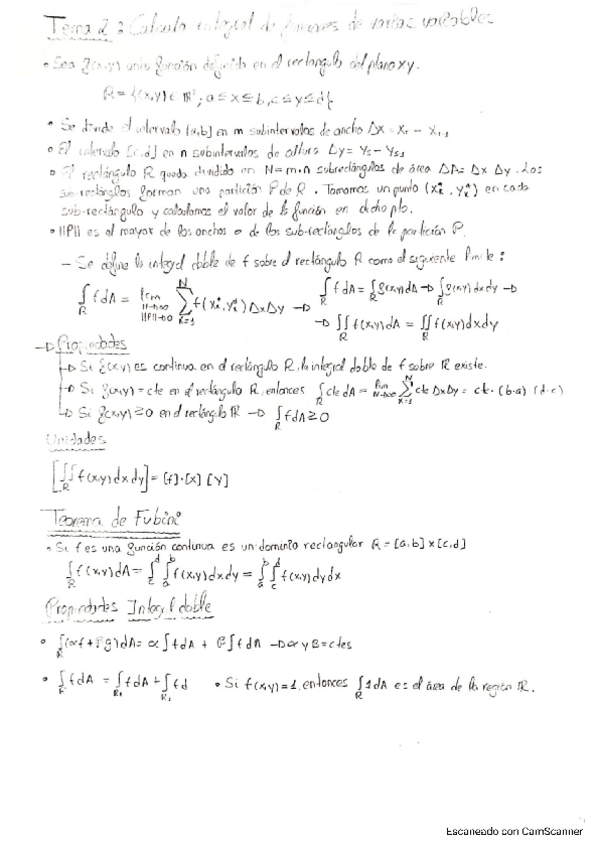 Tema 2: Calculo integral de funciones de varias variables
• Sea f(x,y) una función definida en el rectangulo del plano xy.
R = {(x,y) ∈ ℝ²; a ≤ x ≤ b, c ≤ y ≤ d}
• Se divide el intervalo [a,b] en m subintervalos de ancho Δx = Xr - Xr-1
• El intervalo [c,d] en n subintervalos de altura Δy = Ys - Ys-1
• El rectángulo R queda dividido en N = m·n subrectángulos de área ΔA = Δx Δy. Los
sub-rectángulos forman una partición P de R. Tomamos un punto (xi*, yi*) en cada
sub-rectángulo y calculamos el valor de la función en dicho pto.
• ||P|| es el mayor de los anchos de los sub-rectángulos de la partición P.
– Se define la integral doble de f sobre el rectángulo R como el siguiente límite:
∫R f dA = lim N→∞ ||P||→0 Σ k=1 N f(xi*, yi*) Δx Δy → ∫R f dA = ∫R f(x,y) dA → ∫R f(x,y) dx dy →
→ ∬R f(x,y) dA = ∬R f(x,y) dx dy
→ Propiedades
→ Si f(x,y) es continua en el rectángulo R, la integral doble de f sobre R existe.
→ Si f(x,y) = cte en el rectángulo R, entonces ∫R cte dA = lim N→∞ Σ k=1 N cte Δx Δy = cte · (b-a) (d-c)
→ Si f(x,y) ≥ 0 en el rectángulo R → ∫R f dA ≥ 0
Unidades
[∬R f(x,y) dx dy] = [f]·[x] [y]
Teorema de Fubini
• Si f es una función continua es un dominio rectangular R = [a,b] x [c,d]
∫R f(x,y) dA = ∫c d ∫a b f(x,y) dx dy = ∫a b ∫c d f(x,y) dy dx
Propiedades Integral doble
• ∫R (αf + βg) dA = α ∫ f dA + β ∫ f dA → α y β = ctes
• ∫R f dA = ∫R1 f dA + ∫R2 f d • Si f(x,y) = 1, entonces ∫R 1 dA es el área de la región R.
Escaneado con CamScanner